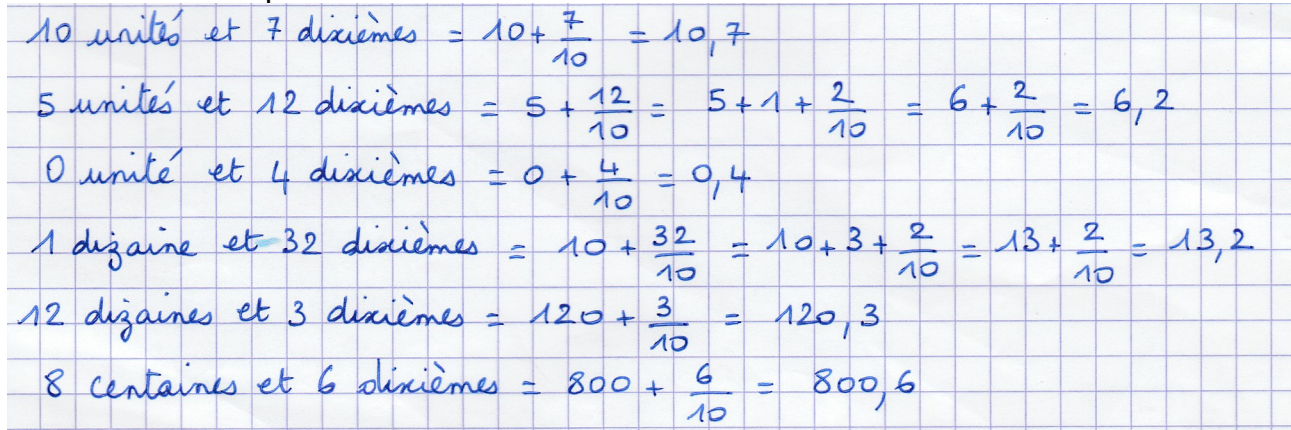 10 unités et 7 dixièmes = 10 + 7/10 = 10,7
5 unités et 12 dixièmes = 5 + 12/10 = 5 + 1 + 2/10 = 6 + 2/10 = 6,2
0 unité et 4 dixièmes = 0 + 4/10 = 0,4
1 dizaine et 32 dixièmes = 10 + 32/10 = 10 + 3 + 2/10 = 13 + 2/10 = 13,2
12 dizaines et 3 dixièmes = 120 + 3/10 = 120,3
8 centaines et 6 dixièmes = 800 + 6/10 = 800,6